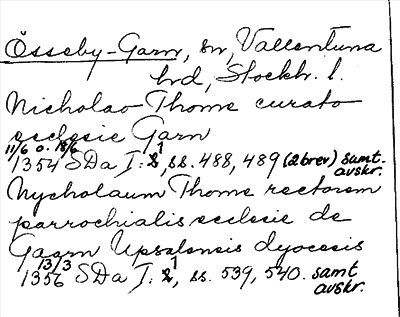 Össeby-Garn, sn, Vallentuna
hrd, Stockh. l.
Nicholao Thome curato
ecclesie Garn
11/6 o. 18/6
1354 SDa I: 1, ss. 488, 489 (2 brev) samt. avskr.
Nycholaum Thome rectorem
parrochialis ecclesie de
Gaarn Upsalensis dyocesis
13/3
1356 SDa I: 1, ss. 539, 540. samt avskr.